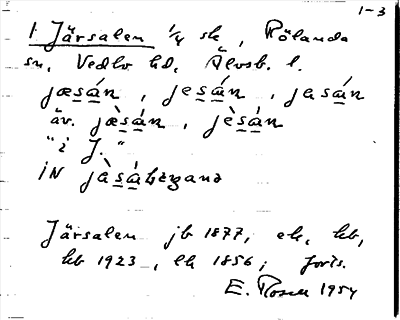 1-3
1. Järsalen 1/4 sk, Rölanda
sn, Vedbo hd, Älvsb. l.
jæsán, jesán, jasán
äv. jæ̀sán, jèsán
"i J."
IN jàsá
Järsalen jb 1877, ek, kb,
kb 1923, lk 1856; forts.
E. Rosell 1954